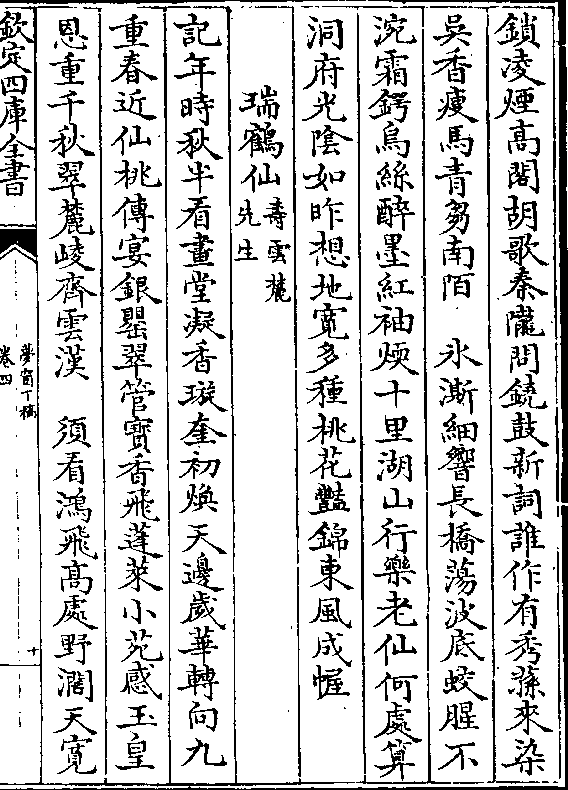 鎖凌煙高閣胡歌秦隴問鐃鼓新詞誰作有秀蓀來染
吳香瘦馬青芻南陌　氷澌細響長橋蕩波底蛟腥不
涴霜鍔烏絲醉墨紅袖煖十里湖山行樂老仙何處算
洞府光陰如昨想地寛多種桃花豔錦東風成幄
瑞鶴仙壽雲麓先生
記年時秋半看畫堂凝香璇奎初煥天邊歲華轉向九
重春近仙桃傳宴銀罌翠管寶香飛蓬萊小苑感玉皇
恩重千秋翠麓崚齊雲漢　須看鴻飛高處野濶天寛
欽定四庫全書
夢窗丁稿
卷四
十